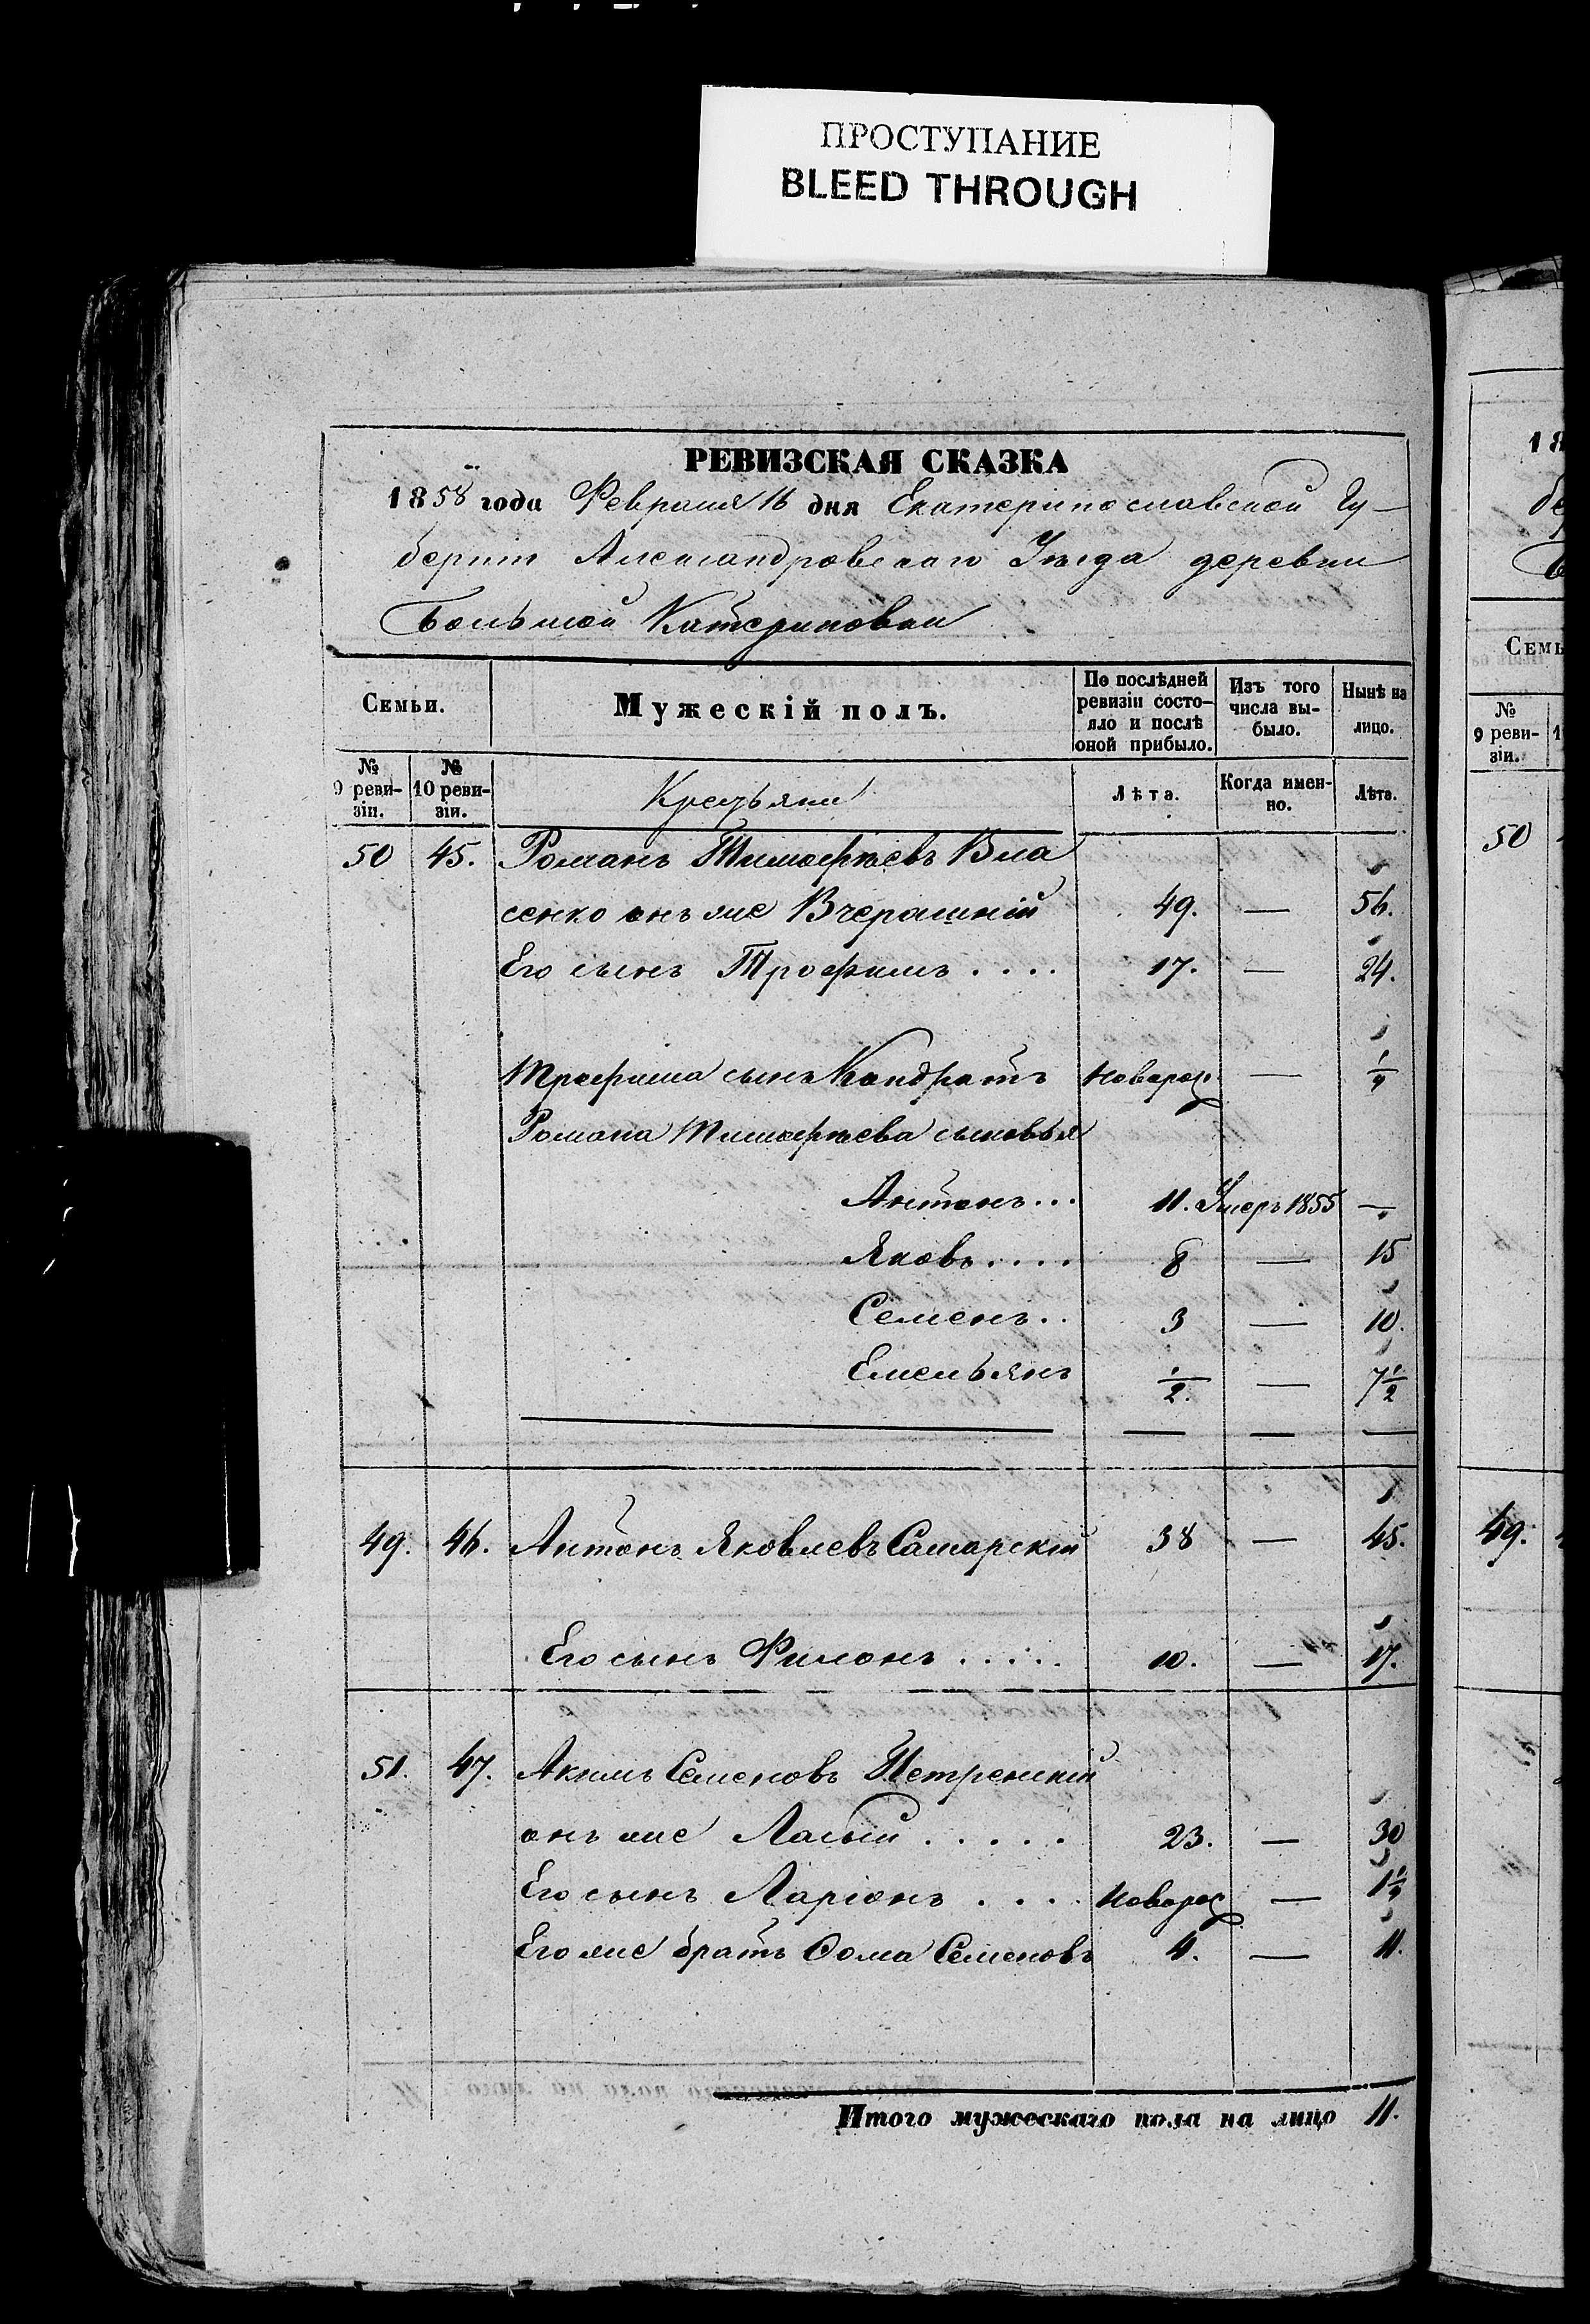 ПРОСТУПАНИЕ
BLEED THROUGH
РЕВИЗСКАЯ СКАЗКА
1858 года Февраля 16 дня Екатеринославской Гу-
берніи Александровскаго Уѣзда деревни
Большой Катериновки
Семьи.
Мужескій полъ.
По послѣдней ревизіи состо-яло и послѣ оной прибыло.
Изъ того числа вы-было.
Нынѣ на лицо.
№ 9 реви-зіи.
№ 10 реви-зіи.
Крестьяни
Лѣта.
Когда имен-но.
Лѣта.
50 45. Романъ Тимофѣевъ Вла
сенко онъ же Вчерашній 49. — 56.
Его сынъ Трофимъ.... 17. — 24.
Трофима сынъ Кондратъ Новорож. —
Романа Тимофѣева сыновья
Антонъ... 11. Умеръ 1855 —
Яковъ.... 8 — 15
Семенъ.. 3 — 10.
Емельянъ 1/2. — 7 1/2
49. 46. Антонъ Яковлевъ Самарскій 38 — 45.
Его сынъ Филонъ..... 10. — 17.
51. 47. Акимъ Семеновъ Петренскій
онъ же Ласый..... 23. — 30
Его сынъ Ларіонъ... Новорож —
Его же братъ Ѳома Семеновъ 4. — 11.
Итого мужескаго пола на лицо 11.
18
Семь
№ 9 реви-зіи.
50
49.